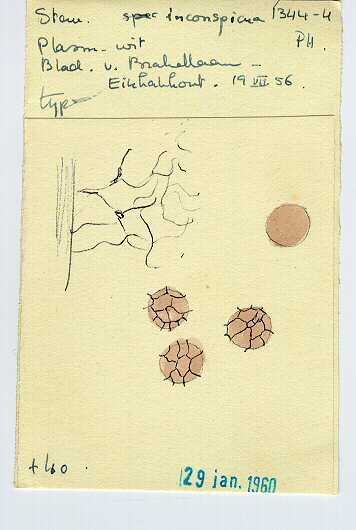 Stem. spec inconspicua 1344-4
Plasm. wit PH.
Blad. v.
Eikhakhout. 19 VII 56.
type
+ 160.
29 jan. 1960